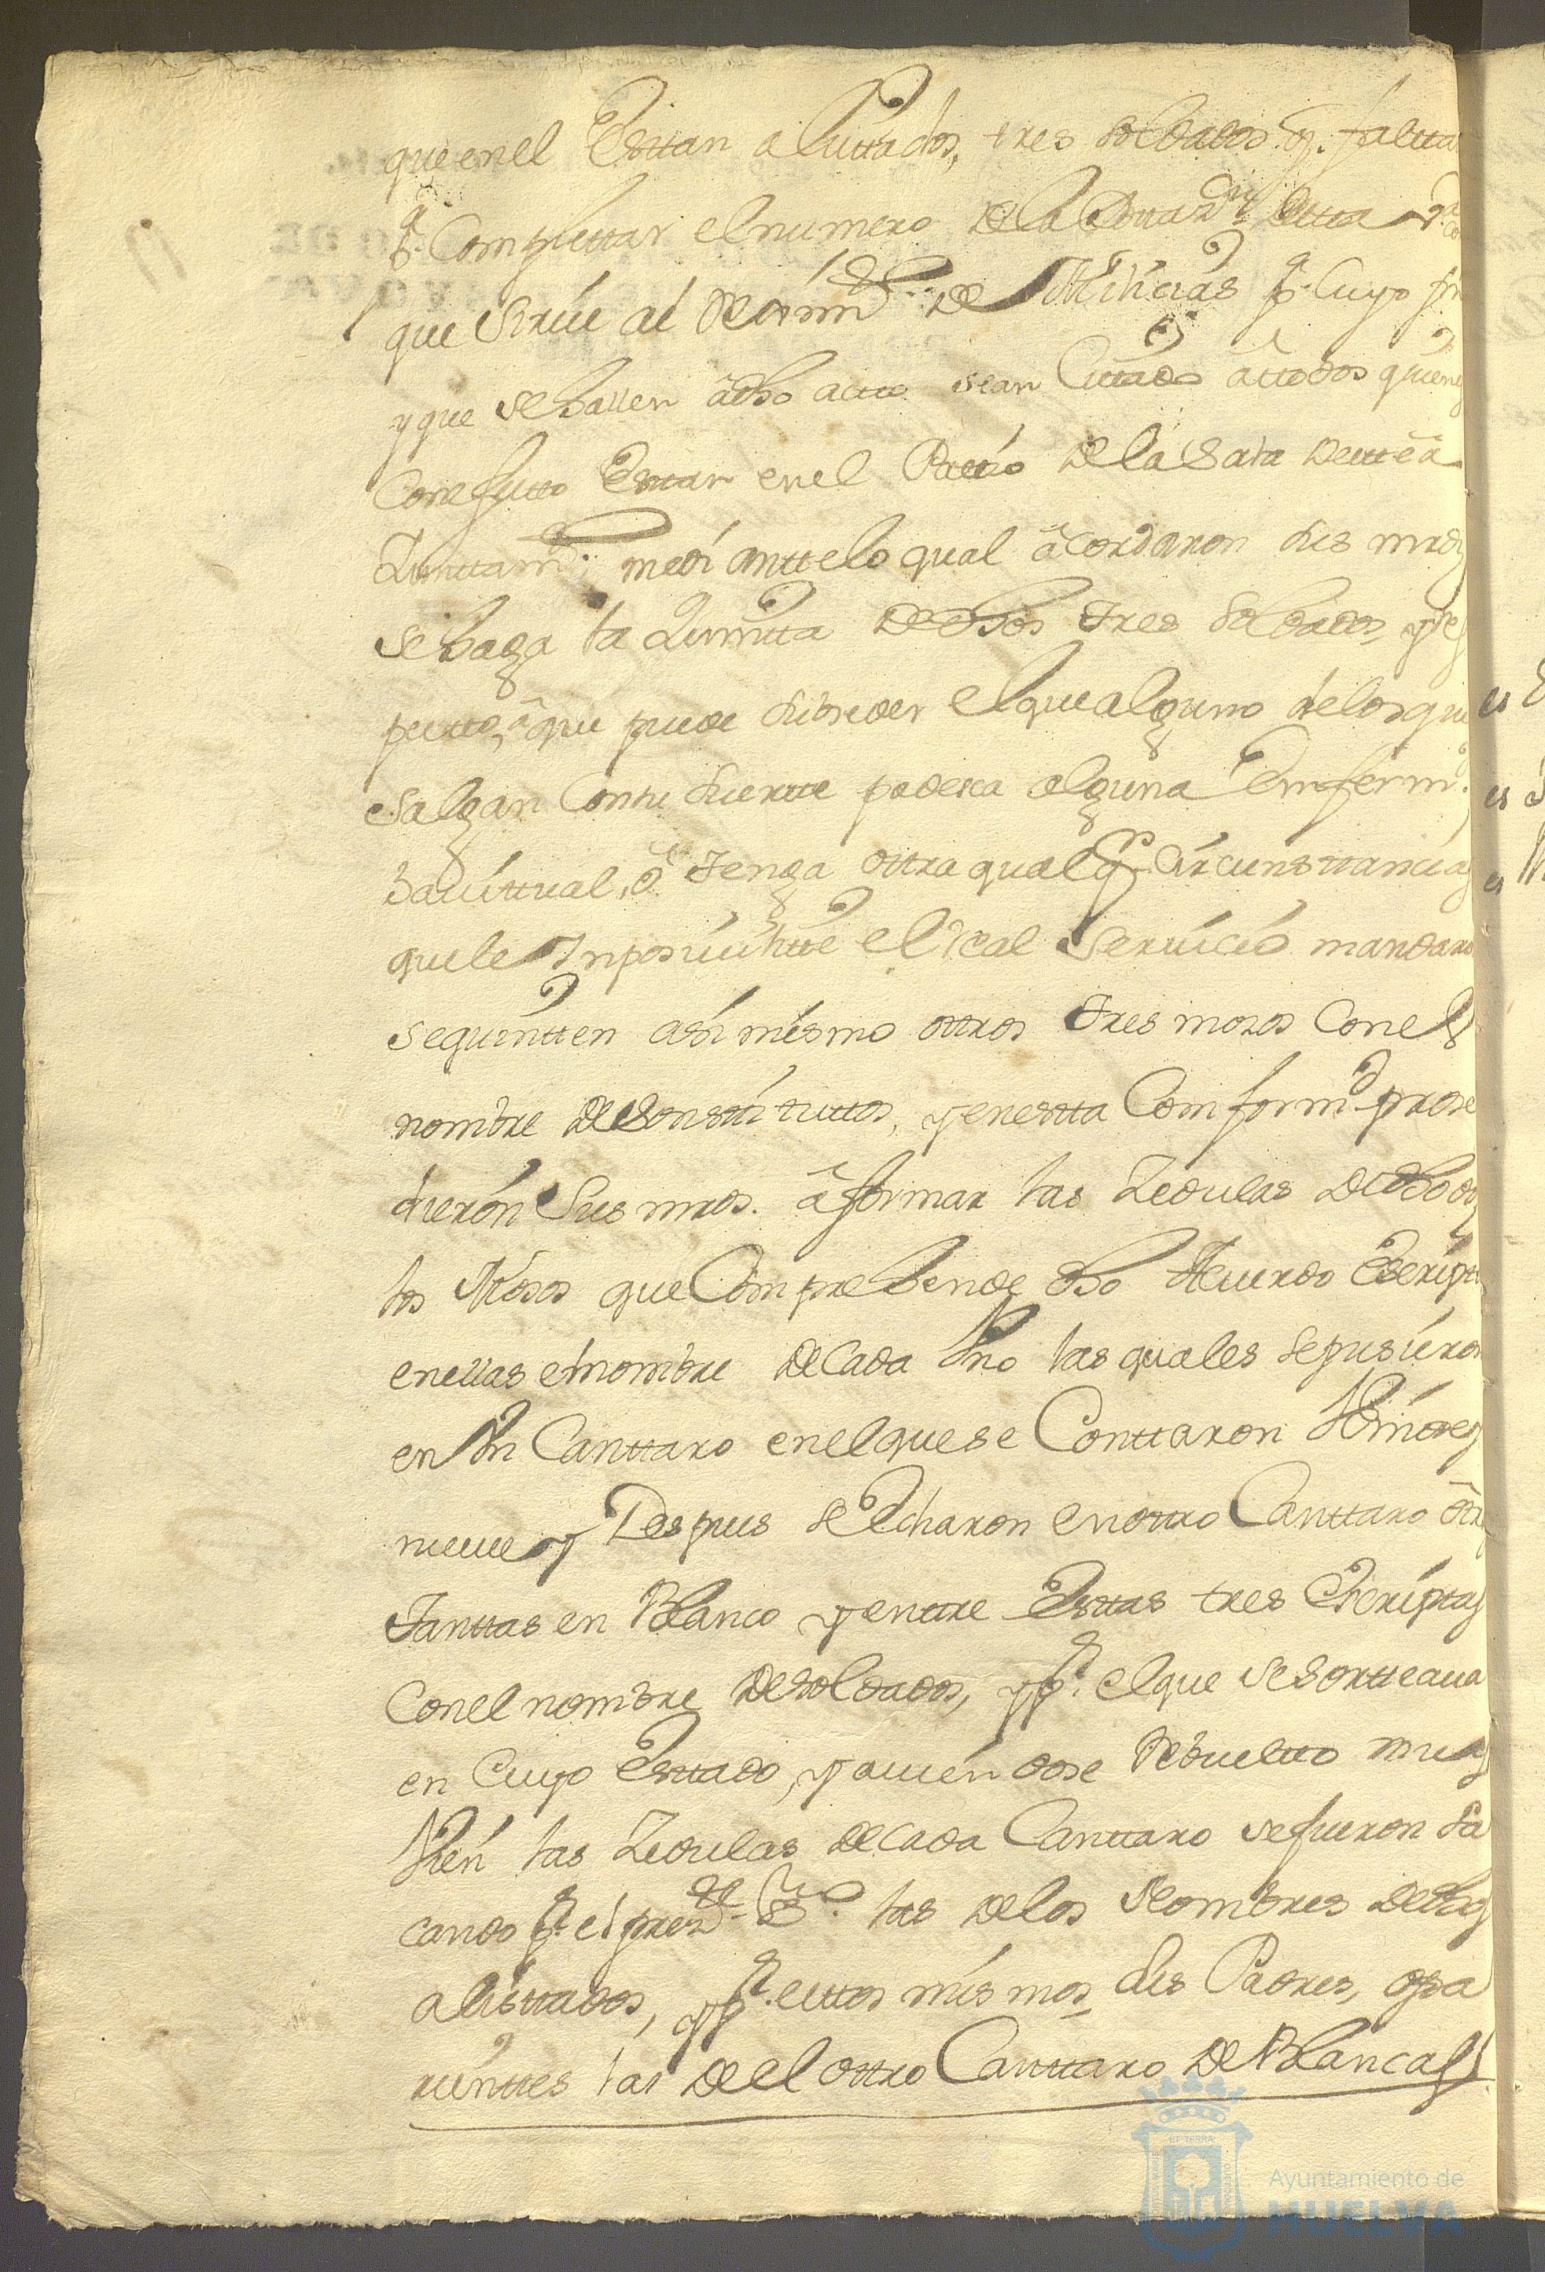 que en el Esttan alisttados, tres soldados q.e faltta
p.a Complettar el numero de la de estta
que sirve al Regim.to de Milicias p.a Cuyo fin
y que se hallen â dho actto sean Cittados â ttodos quienes
Con efectto Esttan en el Pattio de la Sala de estte â
Iunttam.to; mediantte lo qual âcordaron sus mrds
se haga la Quintta de dhos tres soldados, y res
pectto, â que puede subseder el que alguno de los que
salgan Con su suertte padesca alguna Enferm.d
havittual, ô tenga ottra qualq.ra Circunsttancia
que le Inposivilitte el Real Servicio mandaron
se quintten asi mismo ottros tres mosos Con el
nombre de sonstituttos, y en estta Comform.d prose
dieron Sus mrds. â formar las Zedulas de dhos
los Mosos que Comprehende dho Acuerdo Escriptto
en ellas el nombre de Cada Uno las quales se pusieron
en Un Canttaro en el que se Conttaron
nueve y Despues se Echaron en ottro Canttaro ôtras
Tanttas en Blanco y enttre Esttas tres Escriptas
Con el nombre de soldados, y p.r el que se sortteava
en Cuyo Esttado, y aviendose Rebueltto muy
Vien las Zedulas de Cada Canttaro se fueron Sa
cando p.r el pres.te S.no las de los Nombres de dhos
alisttados, y p.r esttos mismos sus Padres, o pa
rientes las de el ottro Canttaro de Blancas
Ayuntamiento de
HUELVA